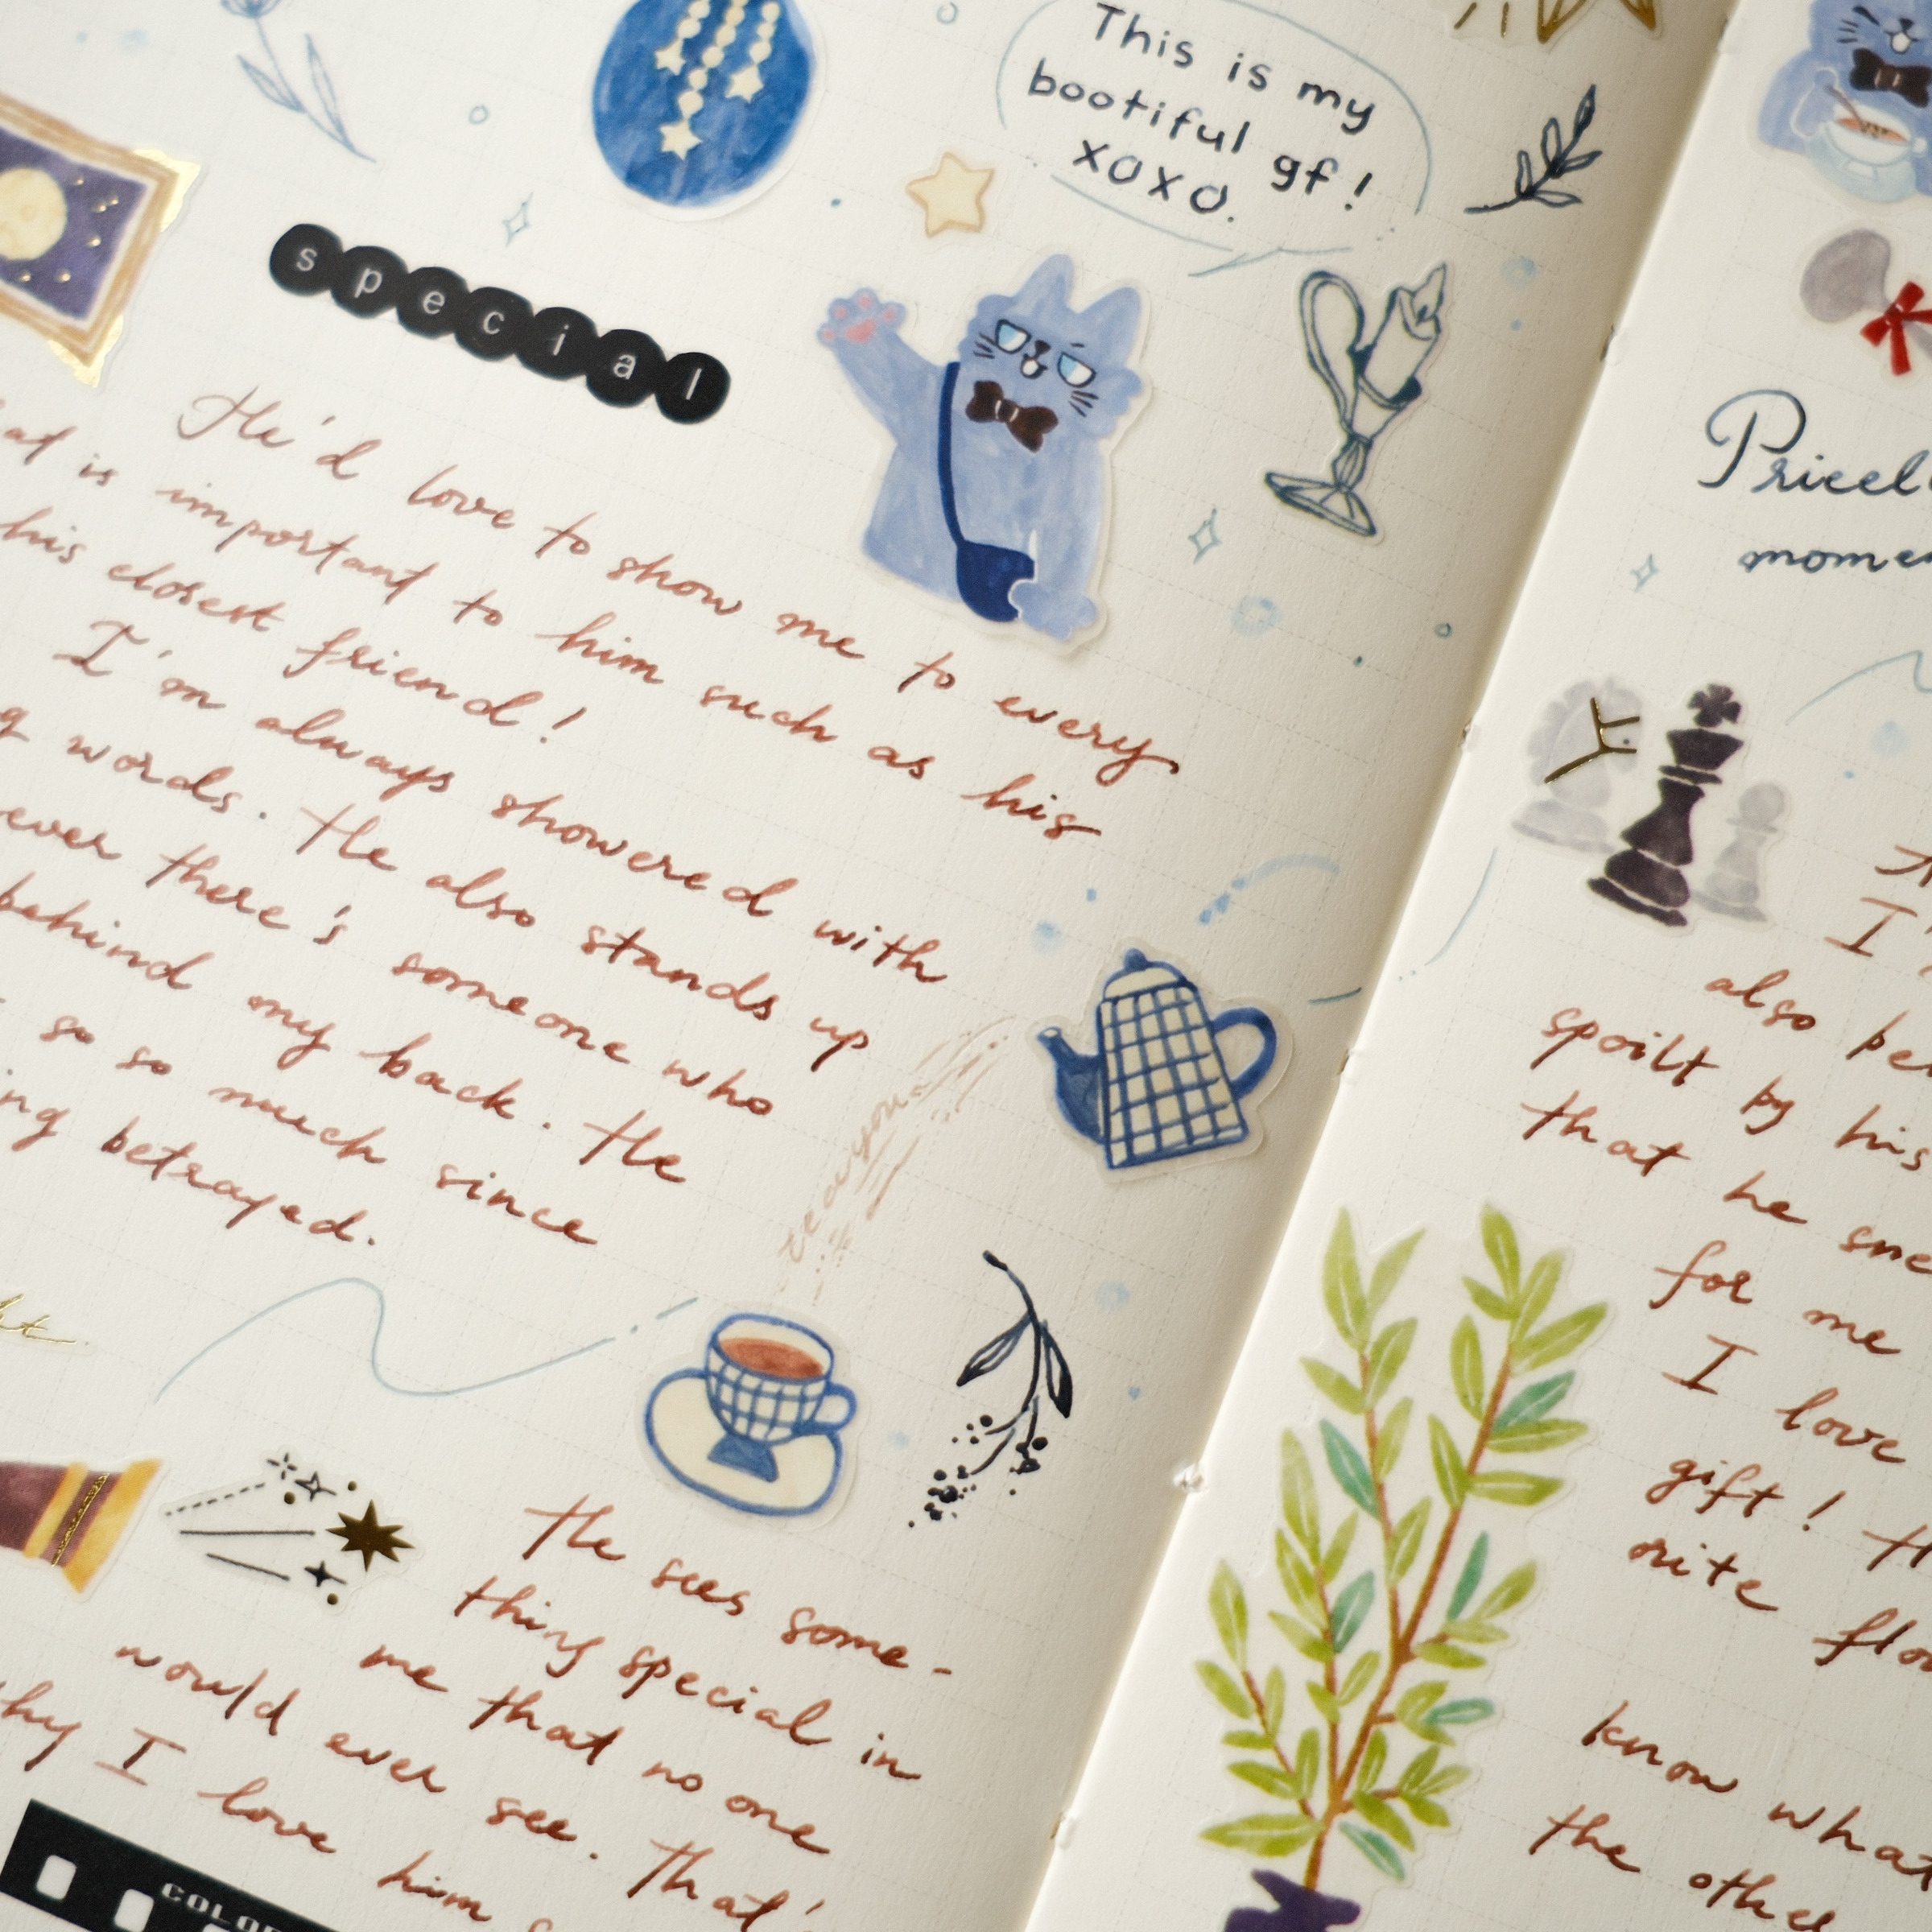 This is my
bootiful gf!
xoxo.
special
He'd love to show me to every
is important to him such as his
his closest friend!
I'm always showered with
words. He also stands up
ever there's someone who
behind my back. He
so so much since
betrayed.
tea you
He sees some-
thing special in
me that no one
would ever see. That'
I love him
COLO
Pricel
mome
I
also
spoilt by his
that he sne
for me
I love
gift! H
rite flo
know what
the othe